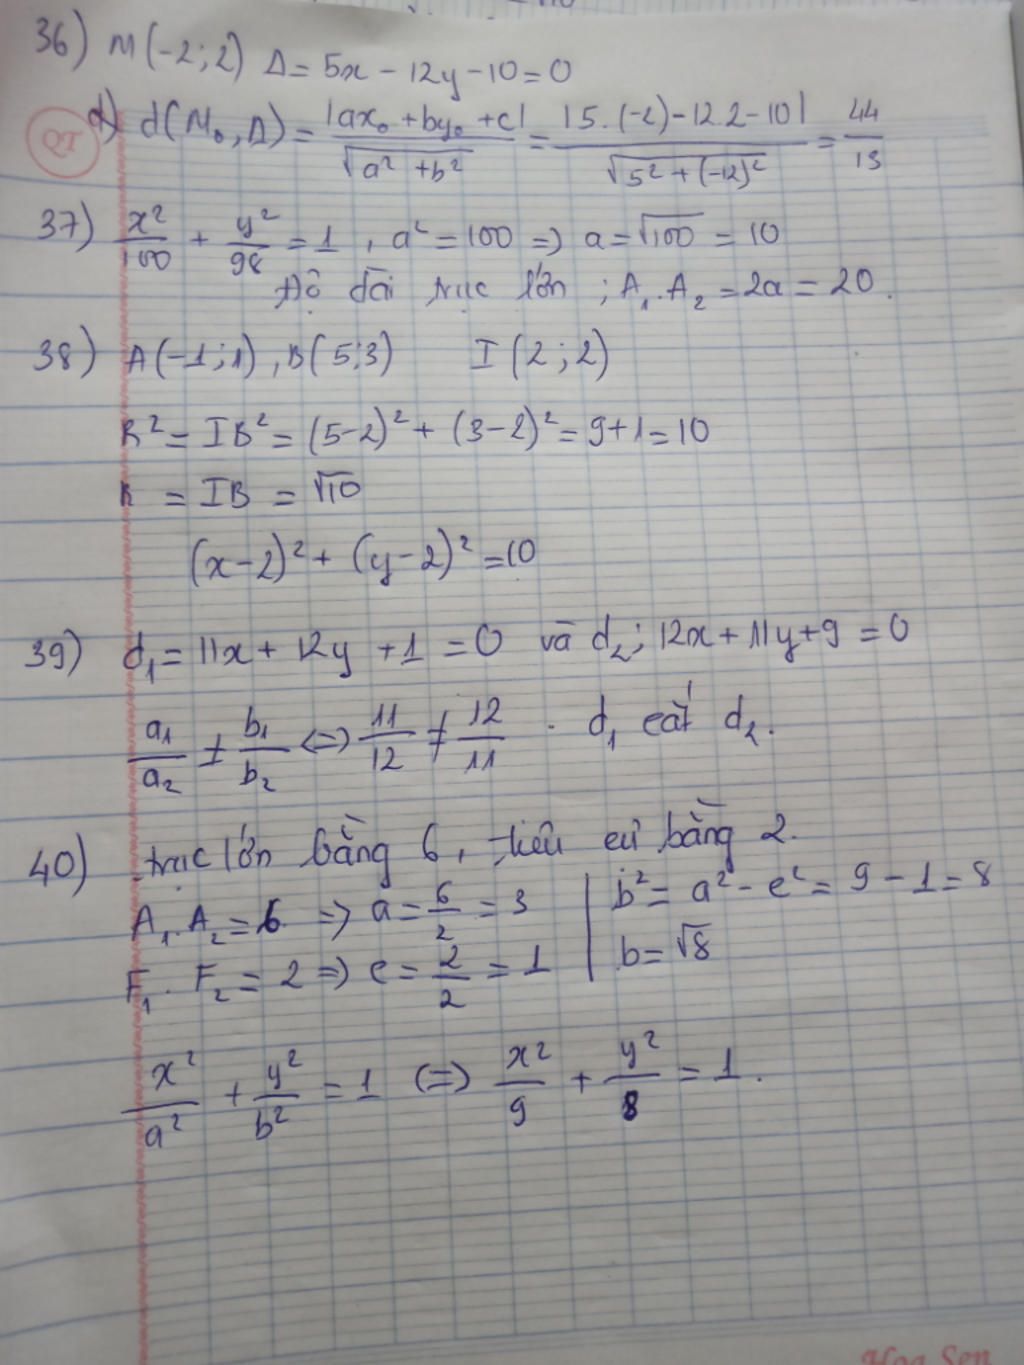 36) M(-2;2) Δ= 5x - 12y - 10 = 0
QT
d) d(M₀, Δ) = |ax₀ + by₀ + c| / √(a² + b²) = |5.(-2) - 12.2 - 10| / √(5² + (-12)²) = 44/13
37) x²/100 + y²/98 = 1, a² = 100 => a = √100 = 10
Độ dài trục lớn ; A₁.A₂ = 2a = 20.
38) A(-1;1), B(5;3) I(2;2)
R² = IB² = (5-2)² + (3-2)² = 9+1 = 10
R = IB = √10
(x-2)² + (y-2)² = 10
39) d₁= 11x + 12y + 1 = 0 và d₂; 12x + 11y + 9 = 0
a₁/a₂ ≠ b₁/b₂ <=> 11/12 ≠ 12/11 . d₁ cắt d₂.
40) trục lớn bằng 6, tiêu cự bằng 2.
A₁.A₂ = 6 => a = 6/2 = 3 | b² = a² - c² = 9 - 1 = 8
F₁.F₂ = 2 => c = 2/2 = 1 | b = √8
x²/a² + y²/b² = 1 (=>) x²/9 + y²/8 = 1.
Hoa Sen